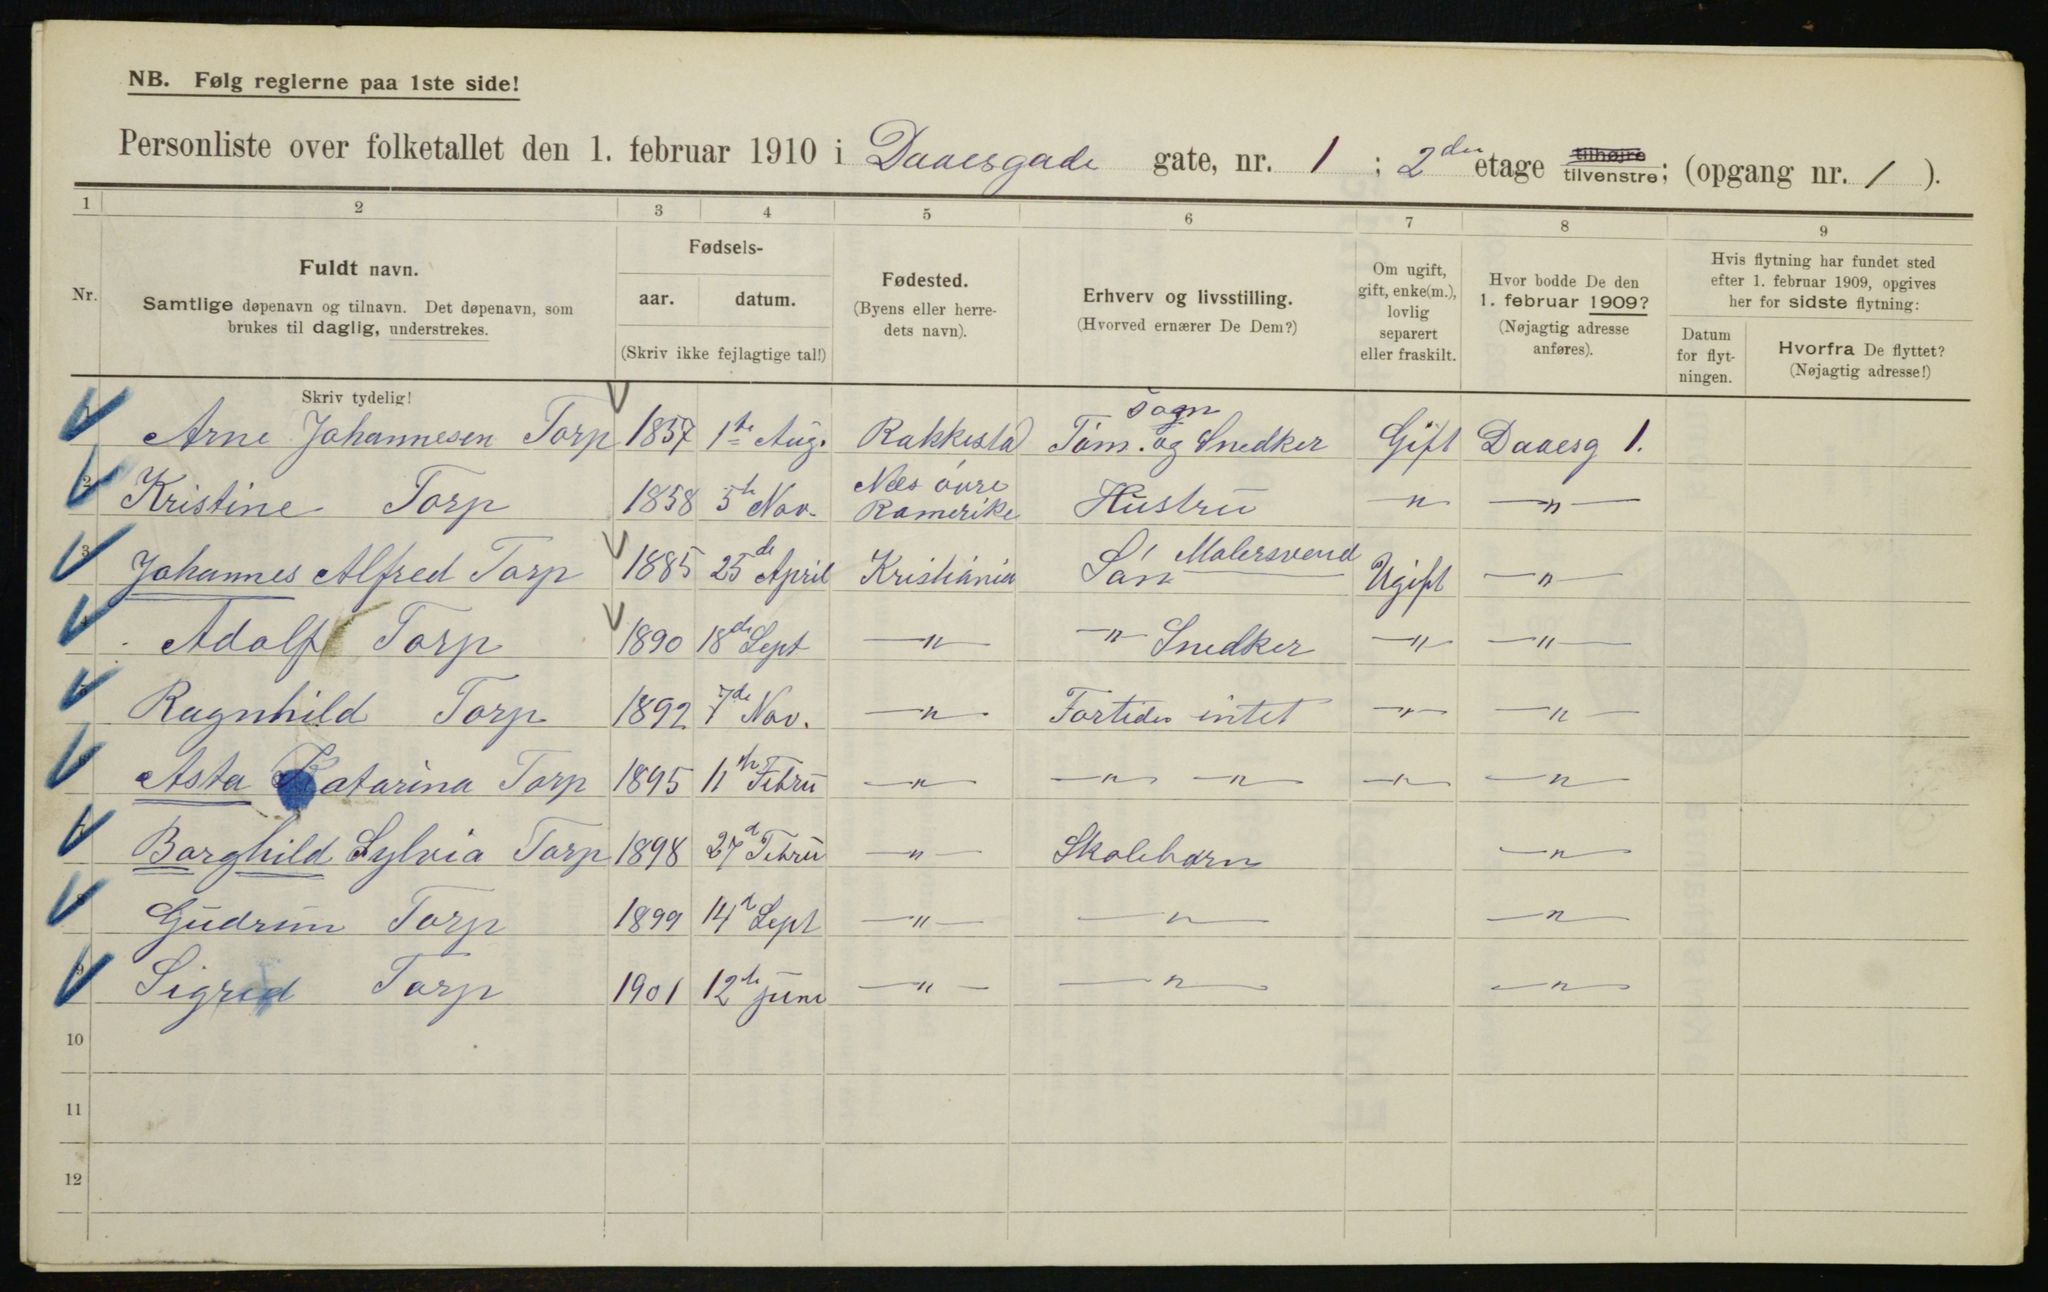 NB. Følg reglerne paa 1ste side!
Personliste over folketallet den 1. februar 1910 i Daaesgade gate, nr. 1 ; 2den etage tilhøjre tilvenstre; (opgang nr. 1 ).
1 2 3 4 5 6 7 8 9
Nr.
Fuldt navn.
Samtlige døpenavn og tilnavn. Det døpenavn, som
brukes til daglig, understrekes.
Skriv tydelig!
Fødsels-
aar. datum.
(Skriv ikke fejlagtige tal!)
Fødested.
(Byens eller herre-
dets navn).
Erhverv og livsstilling.
(Hvorved ernærer De Dem?)
Om ugift,
gift, enke(m.),
lovlig
separert
eller fraskilt.
Hvor bodde De den
1. februar 1909?
(Nøjagtig adresse
anføres).
Hvis flytning har fundet sted
efter 1. februar 1909, opgives
her for sidste flytning:
Datum
for flyt-
ningen.
Hvorfra De flyttet?
(Nøjagtig adresse!)
1 Arne Johannesen Torp 1857 1te Aug. Rakkestad Töm. og Snedker Gift Daaesg 1.
2 Kristine Torp 1858 5te Nov. Næs övre Romerike Hustru " "
3 Johannes Alfred Torp 1885 25de April Kristiania Sön Malersvend Ugift "
4 Adolf Torp 1890 18de Sept " " Snedker " "
5 Ragnhild Torp 1892 7de Nov. " Fortider intet " "
6 Asta Katarina Torp 1895 11te Febru " " " " "
7 Borghild Sylvia Torp 1898 27d Febru " Skolebarn "
8 Gudrun Torp 1899 14d Sept " " "
9 Sigrid Torp 1901 12te juni " " "
10
11
12